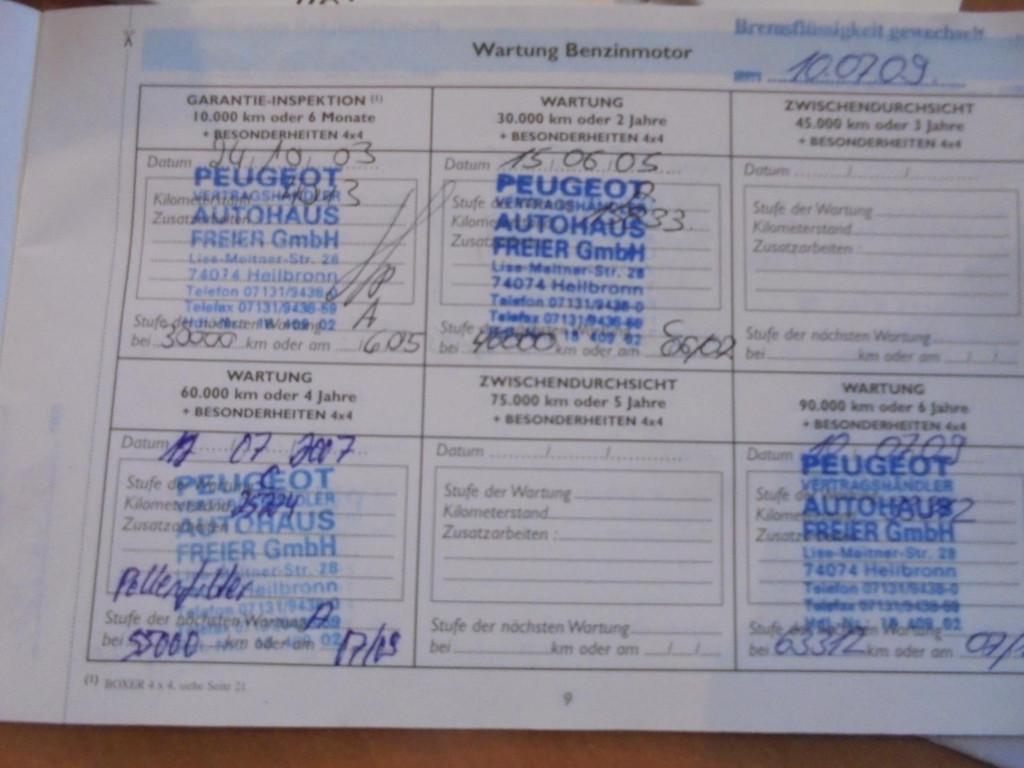 Bremsflüssigkeit gewechselt
Wartung Benzinmotor
am 10.07.09.
GARANTIE-INSPEKTION (1)
10.000 km oder 6 Monate
+ BESONDERHEITEN 4x4
Datum 24 / 10 / 03
PEUGEOT
VERTRAGSHÄNDLER
Kilometerstand
Zusatzarbeiten
AUTOHAUS
FREIER GmbH
Lise-Meitner-Str. 28
74074 Heilbronn
Telefon 07131/9438-0
Telefax 07131/9438-69
A
Stufe der nächsten Wartung
bei 30000 km oder am 6.05
WARTUNG
30.000 km oder 2 Jahre
+ BESONDERHEITEN 4x4
Datum 15.06.05
PEUGEOT
Stufe der
VERTRAGSHÄNDLER
AUTOHAUS
FREIER GmbH
Lise-Meitner-Str. 28
74074 Heilbronn
Telefon 07131/9438-0
Telefax 07131/9438-69
Stufe der nächsten
18 409 02
bei km oder am
ZWISCHENDURCHSICHT
45.000 km oder 3 Jahre
+ BESONDERHEITEN 4x4
Datum / / 
Stufe der Wartung
Kilometerstand
Zusatzarbeiten :
Stufe der nächsten Wartung
bei km oder am / /
WARTUNG
60.000 km oder 4 Jahre
+ BESONDERHEITEN 4x4
Datum 07 2007
PEUGEOT
Stufe der Wartung
VERTRAGSHÄNDLER
Kilometerstand
Zusatzarbeiten
AUTOHAUS
FREIER GmbH
Lise-Meitner-Str. 28
74074 Heilbronn
Pollenfilter
Telefon 07131/9438-0
Stufe der nächsten Wartung A
bei 55000 km oder am 07/09
ZWISCHENDURCHSICHT
75.000 km oder 5 Jahre
+ BESONDERHEITEN 4x4
Datum / /
Stufe der Wartung
Kilometerstand
Zusatzarbeiten :
Stufe der nächsten Wartung
bei km oder am / /
WARTUNG
90.000 km oder 6 Jahre
+ BESONDERHEITEN 4x4
Datum 10 07.09
PEUGEOT
VERTRAGSHÄNDLER
AUTOHAUS
FREIER GmbH
Lise-Meitner-Str. 28
74074 Heilbronn
Telefon 07131/9438-0
Telefax 07131/9438-69
Hdl.-Nr.: 18 409 02
Stufe der nächsten Wartung
bei 63312 km oder am
(1) BOXER 4 x 4, siehe Seite 21
9